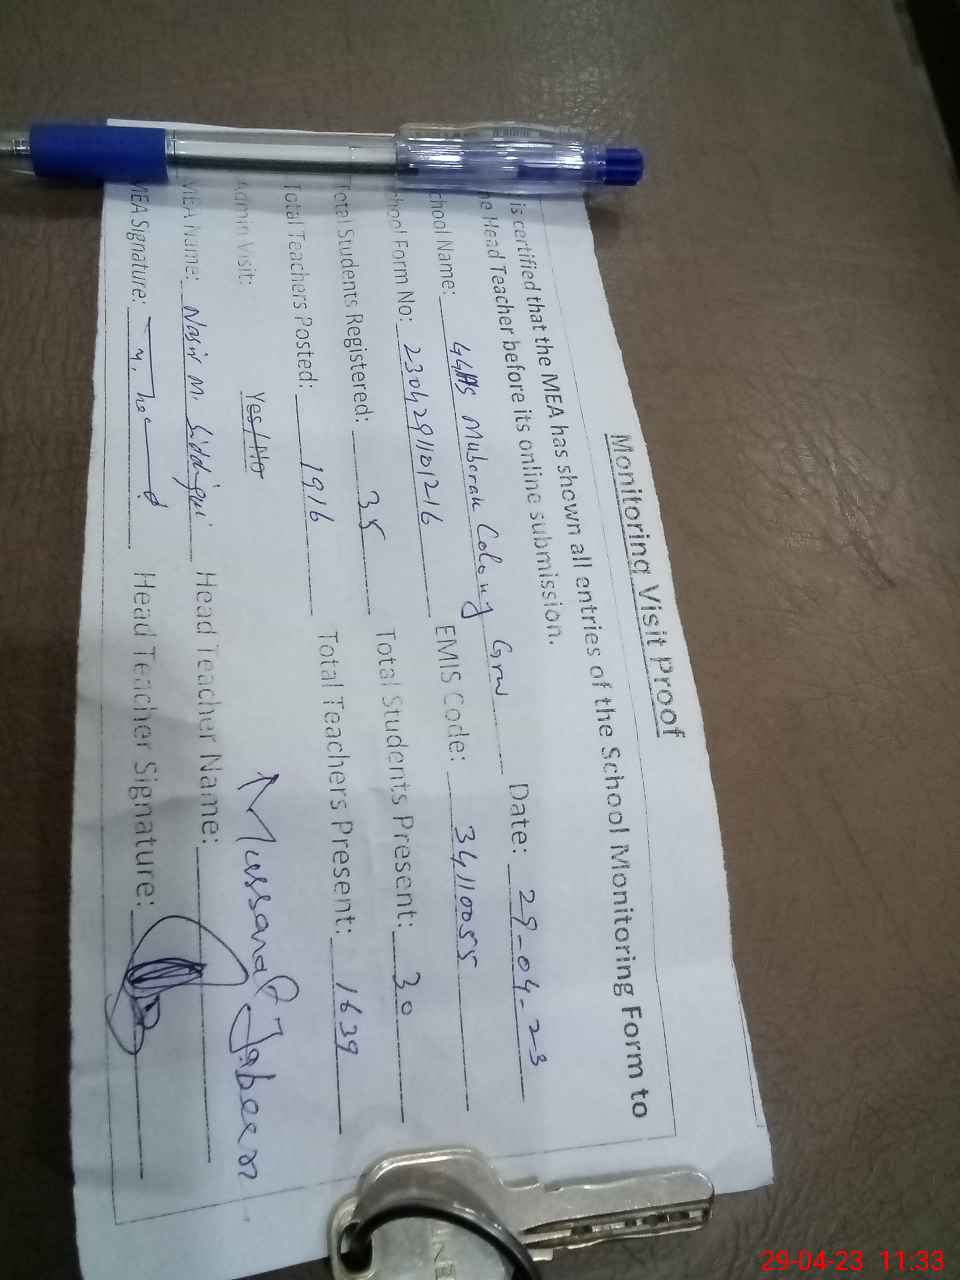 Monitoring Visit Proof
is certified that the MEA has shown all entries of the School Monitoring Form to
he Head Teacher before its online submission.
chool Name: GGHS Mubarak Colony Grw Date: 29-04-23
chool Form No: 2304291101216 EMIS Code: 34110055
Total Students Registered: 35 Total Students Present: 30
Total Teachers Posted: 1916 Total Teachers Present: 1639
Admin Visit: Yes/No
MEA Name: Nasir M. Siddiqui Head Teacher Name: Mussarat Jabeen
MEA Signature: Head Teacher Signature:
29-04-23 11:33